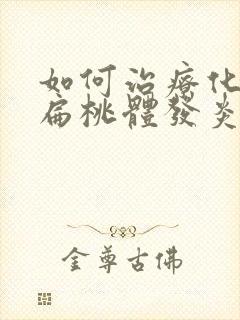 如何治療化
扁桃體發炎
金尊古佛